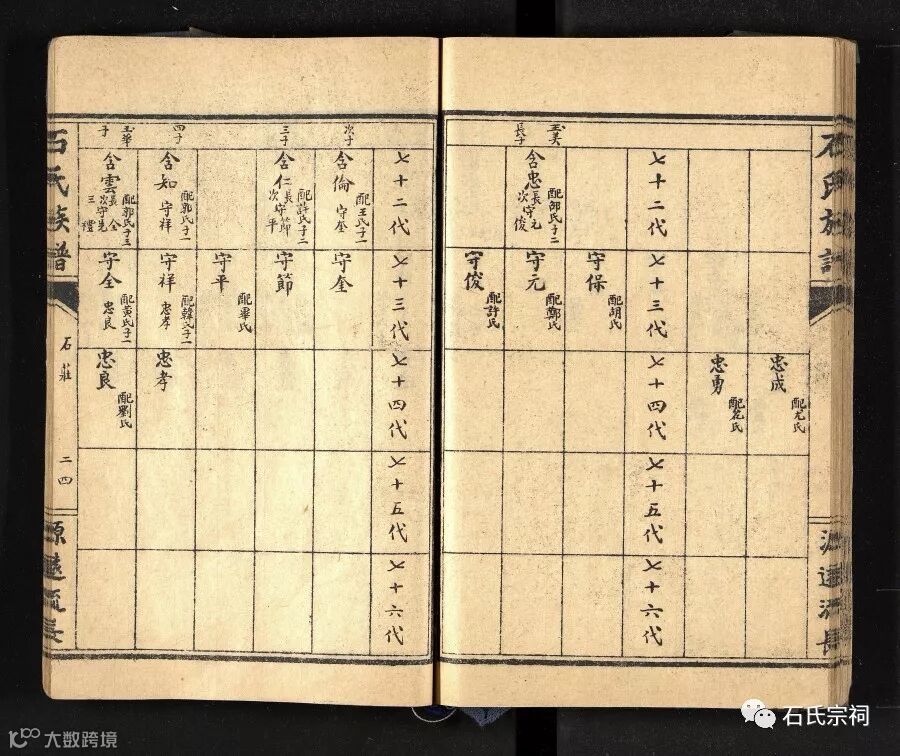 石氏族譜
源遠流長
忠成
配尤氏
忠勇
配范氏
七十二代
七十三代
七十四代
七十五代
七十六代
守保
配胡氏
玉美
長子
含忠
配邵氏子二
長守元
次守俊
守元
配鄭氏
守俊
配許氏
七十二代
七十三代
七十四代
七十五代
七十六代
次子
含倫
配王氏子一
守奎
守奎
三子
含仁
配許氏子二
長守節
次守平
守節
守平
配畢氏
四子
含知
配郭氏子一
守祥
守祥
配韓氏子一
忠孝
忠孝
玉華
子
含雲
配郭氏子三
長守全
次守先
三禮
守全
配黃氏子一
忠良
忠良
配劉氏
石氏族譜
石莊
二四
源遠流長
石氏宗祠
大数跨境